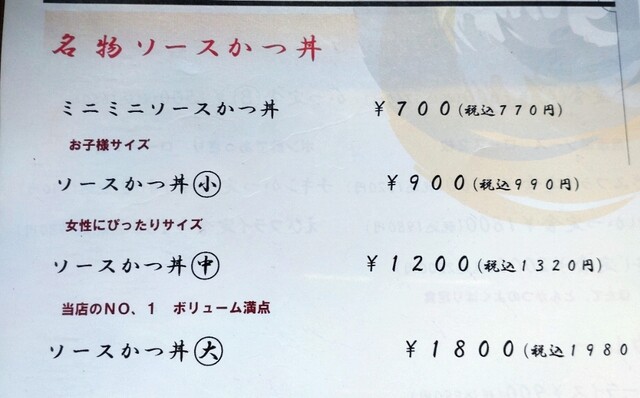 名物ソースかつ丼
ミニミニソースかつ丼 ¥700(税込770円)
お子様サイズ
ソースかつ丼㊉小 ¥900(税込990円)
女性にぴったりサイズ
ソースかつ丼㊥ ¥1200(税込1320円)
当店のNO、1 ボリューム満点
ソースかつ丼大 ¥1800(税込1980